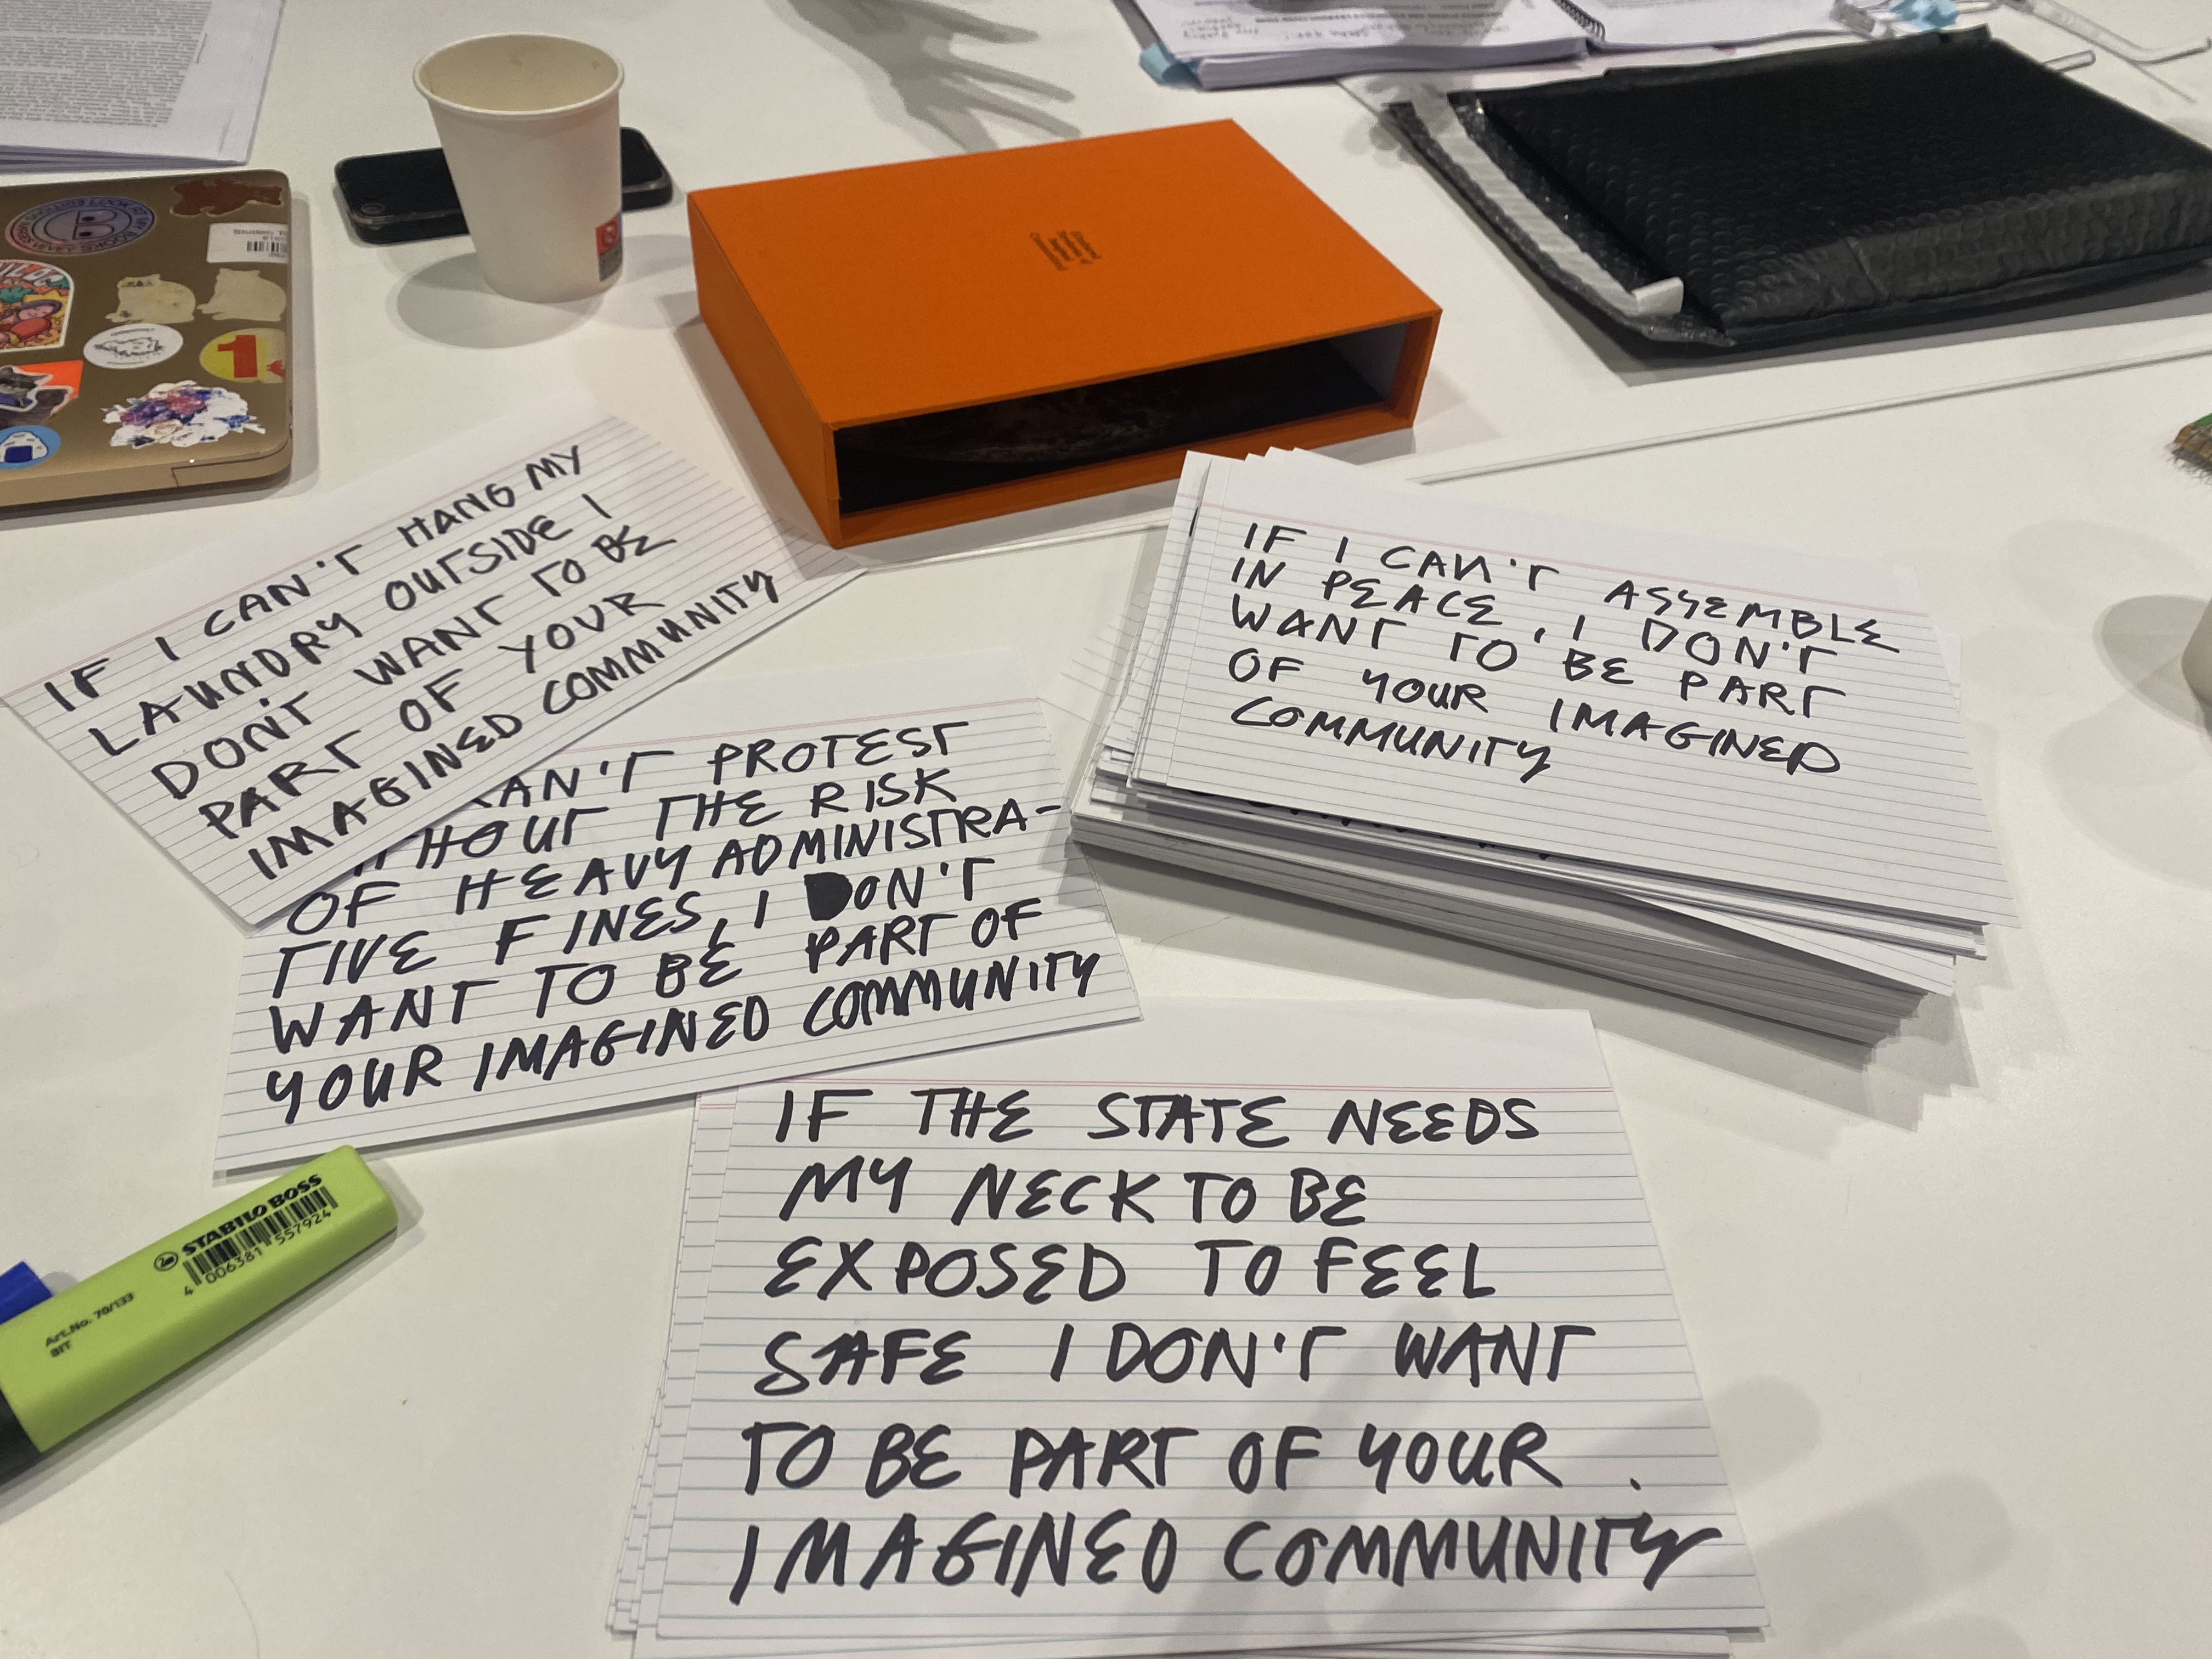 IF I CAN'T HANG MY
LAUNDRY OUTSIDE I
DON'T WANT TO BE
PART OF YOUR
IMAGINED COMMUNITY
CAN'T PROTEST
THOUT THE RISK
OF HEAVY ADMINISTRA-
TIVE FINES, I DON'T
WANT TO BE PART OF
YOUR IMAGINED COMMUNITY
IF I CAN'T ASSEMBLE
IN PEACE, I DON'T
WANT TO BE PART
OF YOUR IMAGINED
COMMUNITY
IF THE STATE NEEDS
MY NECK TO BE
EXPOSED TO FEEL
SAFE I DON'T WANT
TO BE PART OF YOUR
IMAGINED COMMUNITY
STABILO BOSS
4 006381 557924
Art.No. 70/133
BIT
1
B